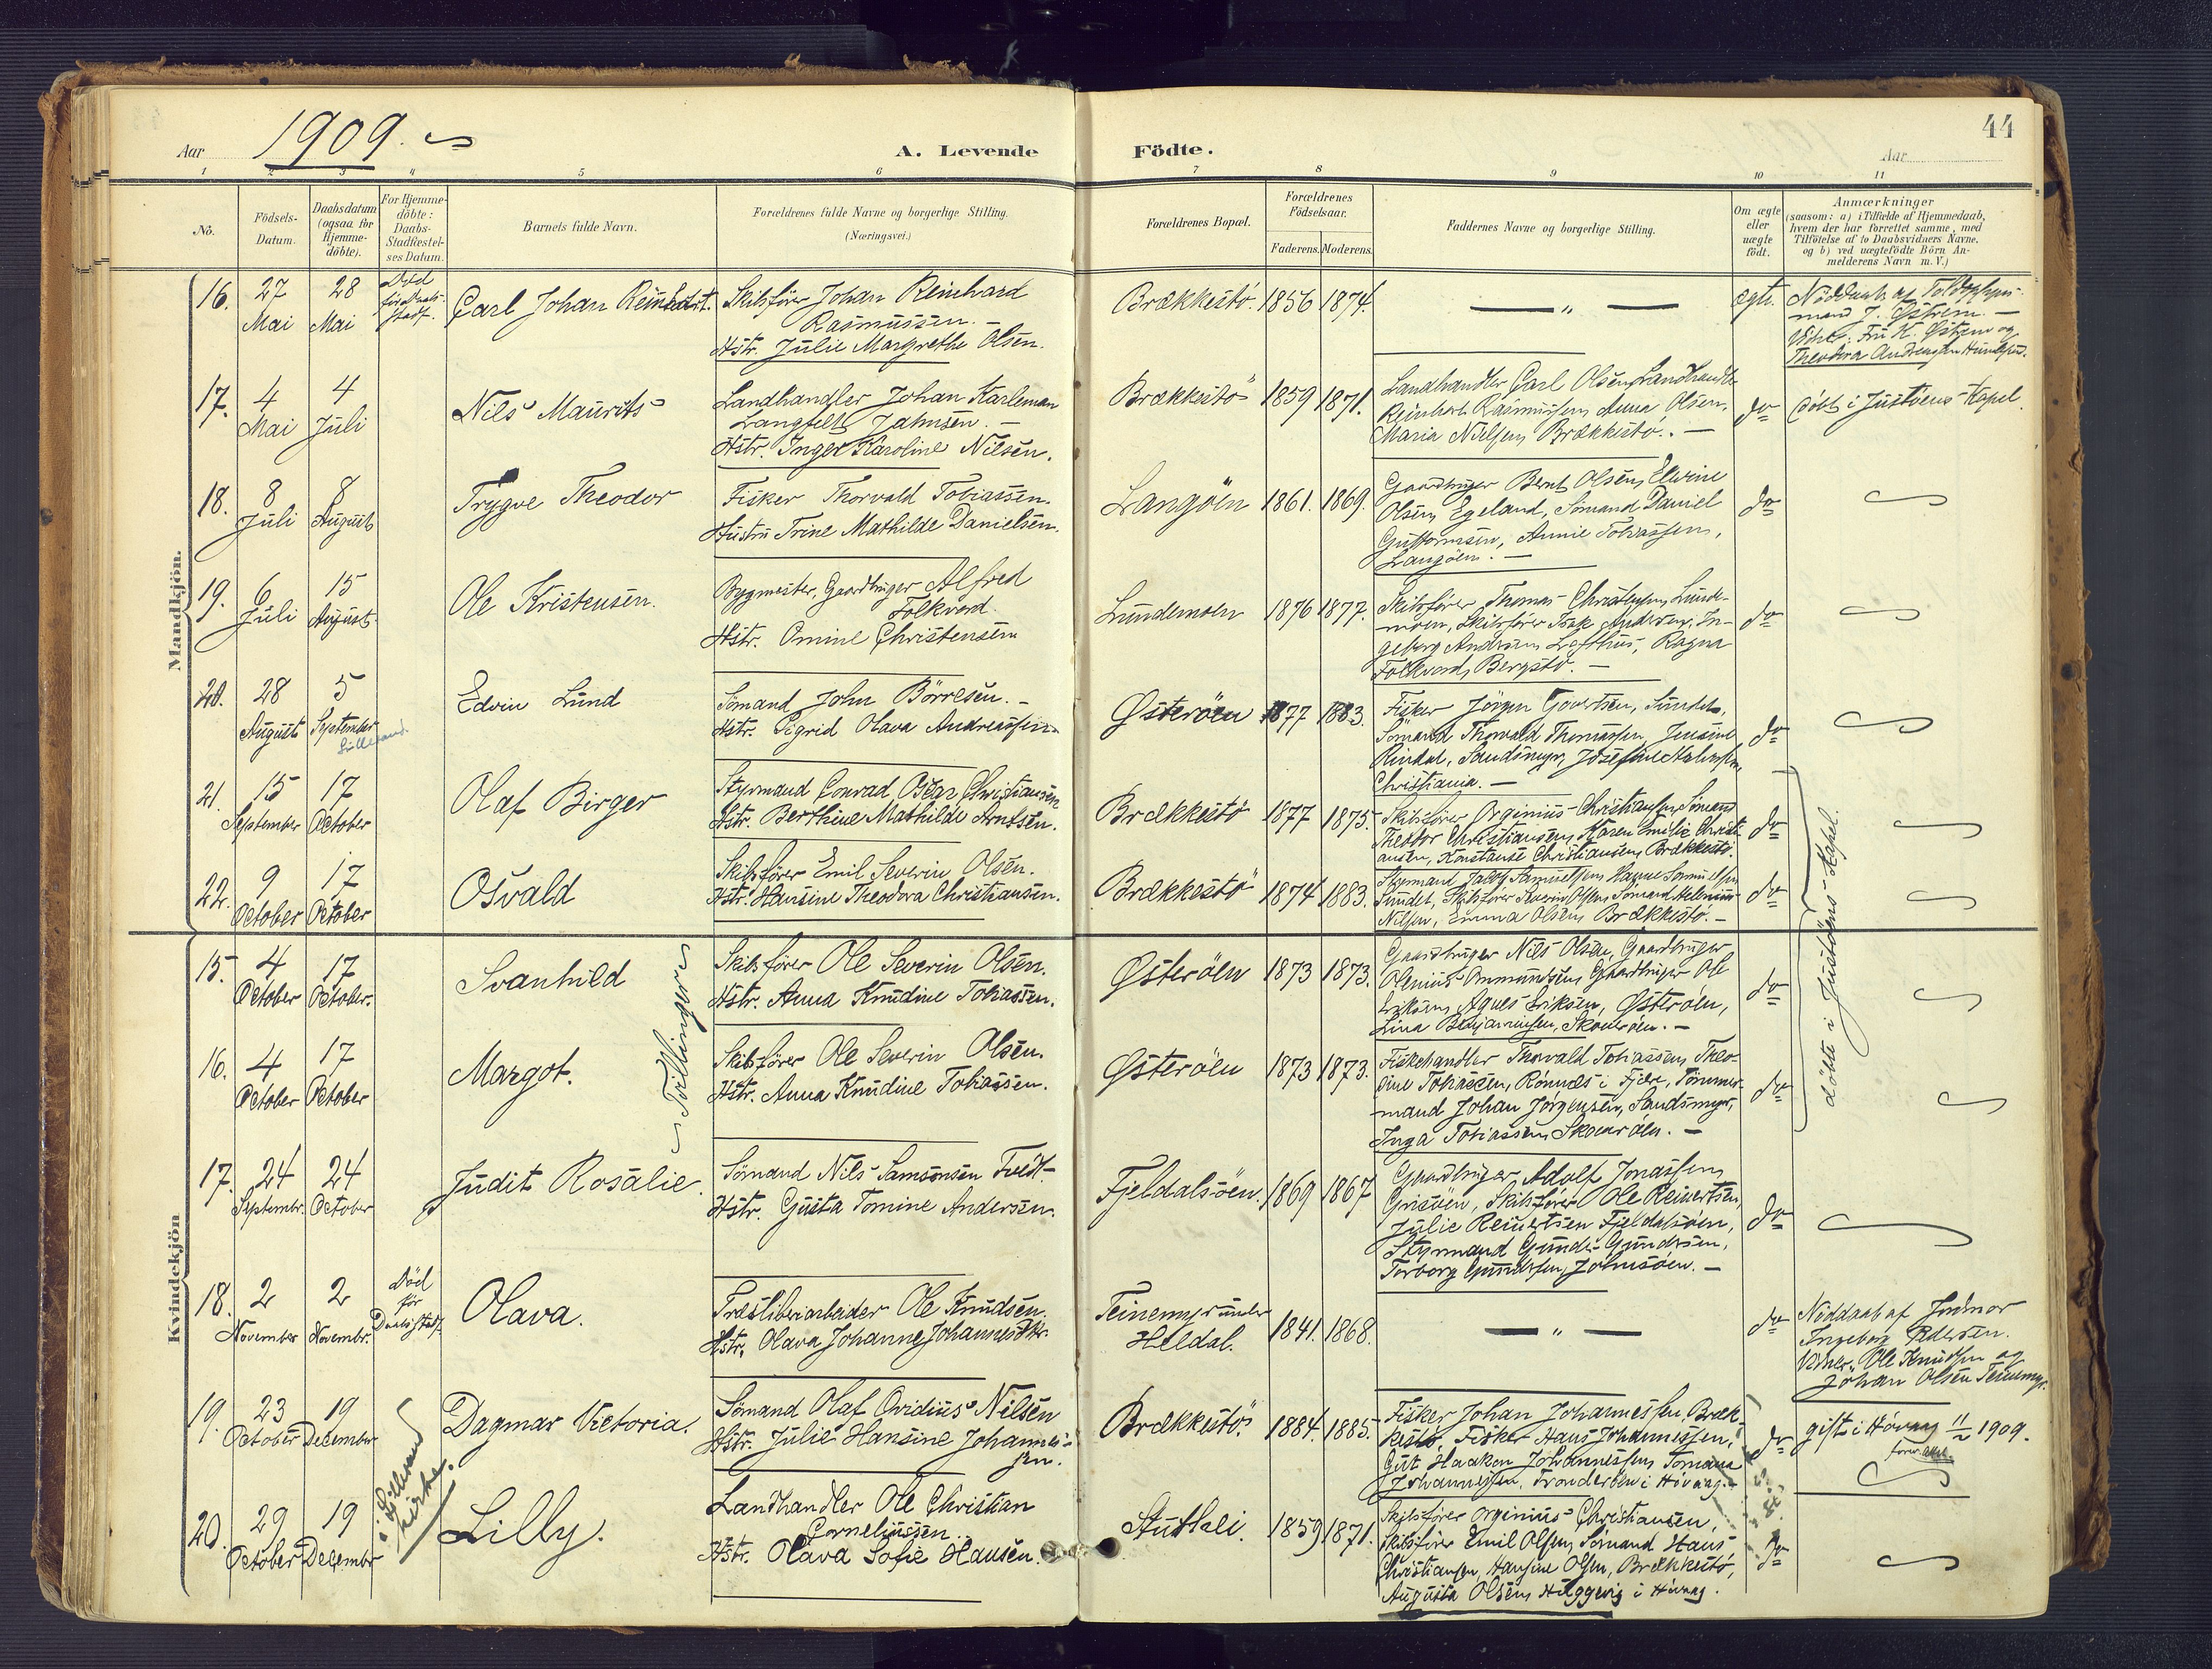 44
Aar 1909.
A. Levende Födte.
Aar
1 2 3 4 5 6 7 8 9 10 11
No.
Födsels-
Datum.
Daabsdatum
(ogsaa for
Hjemme-
döbte).
For Hjemme-
döbte:
Daabs-
Stadfæstel-
ses Datum.
Barnets fulde Navn.
Forældrenes fulde Navne og borgerlige Stilling.
(Næringsvei.)
Forældrenes Bopæl.
Forældrenes
Födselsaar.
Faderens. Moderens.
Faddernes Navne og borgerlige Stilling.
Om ægte
eller
uægte
födt.
Anmærkninger
(saasom: a) i Tilfælde af Hjemmedaab,
hvem der har forrettet samme, med
Tilföielse af to Daabsvidners Navne.
og b) ved uægtefödte Börn An-
melderens Navn m. V.)
Mandkjön.
16. 27 Mai 28 Mai
Död
Carl Johan
Skibsfører Johan Reinhard
Rasmussen.
Hstr. Julie Margrethe Olsen.
Brækkestö. 1856 1874.
— „ —
ægte.
Nöddaab af
mand J. Østrem.
Vidner: Fru K. Østrem og
17. 4 Mai 4 Juli
Nils Maurits
Landhandler Johan Karleman
Langfelt Jahnsen.
Hstr. Inger Karoline Nilsen.
Brækkestö 1859 1871.
Landhandler Carl Olsen, Landhandl.
Reinhart Rasmussen, Anna Olsen,
Maria Nielsen, Brækkestö.
do
döbt i Justöens Kapel.
18. 8 Juli 8 August
Trygve Theodor
Fisker Thorvald Tobiassen.
Hustru Trine Mathilde Danielsen.
Langöen 1861. 1869.
Gaardbruger Bernt Olsen, Elvine
Olsen, Egeland, Sömand Daniel
Guttormsen, Annie Tobiassen,
Langöen.
do
19. 6 Juli 15 August
Ole Kristensen.
Bygmester, Gaardbruger Alfred
Folkvord.
Hstr. Omine Christensen
Lundemoen 1876 1877.
Skibsfører Thomas Christensen, Lunde-
moen, Skibsfører Isak Andersen, In-
geborg Andersen Lofthus, Ragna
Folkvord, Bergstö.
do
20. 28 August 5 September
Lillesand.
Edvin Lund
Sömand John Börresen.
Hstr. Sigrid Olava Andreassen
Østeröen 1877 1883.
Fisker Jörgen Govertsen, Sundet,
Sömand Thorvald Thomassen, Jensine
Christiania.
do
21. 15 September 17 October
Olaf Birger
Styrmand Conrad Oscar Christiansen
Hstr. Berthine Mathilde Arntsen.
Brækkestö 1877 1875.
Skibsfører Orginius Christiansen, Sömand
Theodor Christiansen, Maren Emilie Christi-
ansen, Konstanse Christiansen, Brækkestö.
do
22. 9 October 17 October
Osvald
Skibsfører Emil Severin Olsen.
Hstr. Hansine Theodora Christiansen.
Brækkestö 1874 1883.
Styrmand Jakob Samuelsen, Hanne Samuelsen
Sundet, Skibsfører Severin Olsen, Sömand
Nilsen, Emma Olsen, Brækkestö.
do
döbte i Justöens Kapel.
Kvindekjön
15. 4 October 17 October.
Svanhild
Skibsfører Ole Severin Olsen.
Hstr. Anna Knudine Tobiassen.
Østeröen 1873 1873.
Gaardbruger Nils Olsen, Gaardbruger
Olenius Ommundsen, Gaardbruger Ole
Eriksen, Agnes Eriksen, Østeröen,
Lina Benjaminsen, Skoeröen.
do
Tvillinger
16. 4 October 17 October
Margot.
Skibsfører Ole Severin Olsen.
Hstr. Anna Knudine Tobiassen.
Østeröen 1873 1873.
Fiskehandler Thorvald Tobiassen, Theo-
dine Tobiassen, Rönnes i Fjære, Tömmer-
mand Johan Jörgensen, Sandsmyr,
Inga Tobiassen, Skoeröen.
do
17. 24 Septembr. 24 October
Judit Rosalie.
Sömand Nils Samsonsen Tvedt.
Hstr. Gusta Tomine Andersen.
Fjeldalsöen. 1869 1867
Gaardbruger Adolf Jonassen,
Grisöen, Skibsfører Ole Reinertsen,
Julie Reinertsen, Fjeldalsöen,
Styrmand Gunder Gundersen,
Torborg Gundersen, Johnsöen.
do
18. 2 November 2 Novembr.
Död
før
Olava.
Træsliberiarbeider Ole Knudsen.
Hstr. Olava Johanne Johannesdtr.
Teinemyr under
Heldal. 1841. 1868.
— „ —
do
Nöddaab af Jordmor
Ingeborg Pedersen.
Vidner: Ole Knudsen og
Johan Olsen Teinemyr.
19. 23 October 19 December
Dagmar Victoria.
Sömand Olaf Ovidius Nilsen
Hstr. Julie Hansine Johannes-
sen.
Brækkestö. 1884. 1885.
Fisker Johan Johannessen, Bræk-
kestö, Fisker Hans Johannessen,
Gut Haakon Johannessen, Tomana
Johannessen, Tronderöen i Hövaag.
do
gift i Hövaag 11/2 1909.
i Lillesand
kirke.
20. 29 October 19 Decembr
Lilly.
Landhandler Ole Christian
Corneliussen.
Hstr. Olava Sofie Hansen.
Stutlei. 1859 1871.
Skibsfører Orginius Christiansen,
Skibsfører Emil Olsen, Sömand Hans
Christiansen, Hansine Olsen, Brækkestö,
Augusta Olsen, Hæggevig i Hövaag.
do